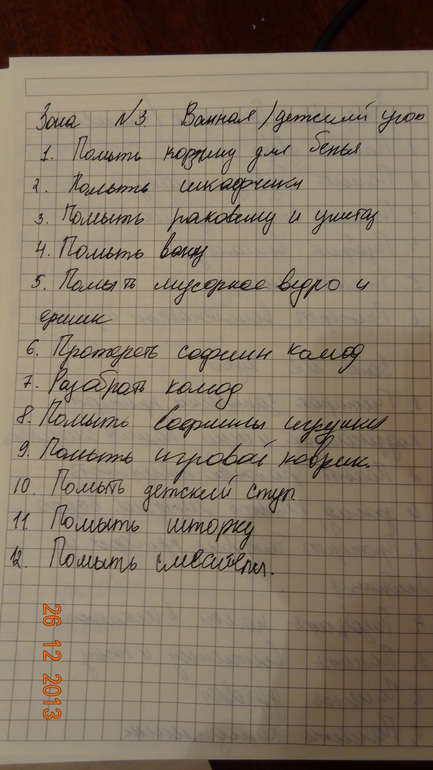 Зона №3. Ванная/детский угол
1. Помыть корзину для белья
2. Помыть шкафчики
3. Помыть раковину и унитаз
4. Помыть ванну
5. Помыть мусорное ведро и
ершик
6. Протереть софинин комод
7. Разабрать комод
8. Помыть Софинины игрушки
9. Помыть игровой коврик.
10. Помыть детский стул
11. Помыть шторку
12. Помыть смесители.
26 12 2013